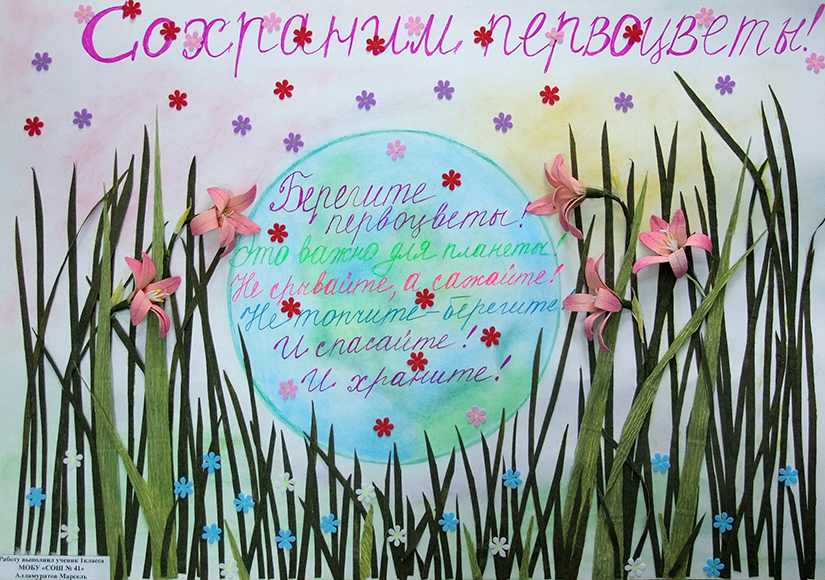 Сохраним первоцветы!
Берегите
первоцветы!
Это важно для планеты!
Не срывайте, а сажайте!
Не топчите-берегите
И спасайте!
И храните!
Работу выполнил ученик 1класса
МОБУ «СОШ № 41»
Алламуратов Марсель